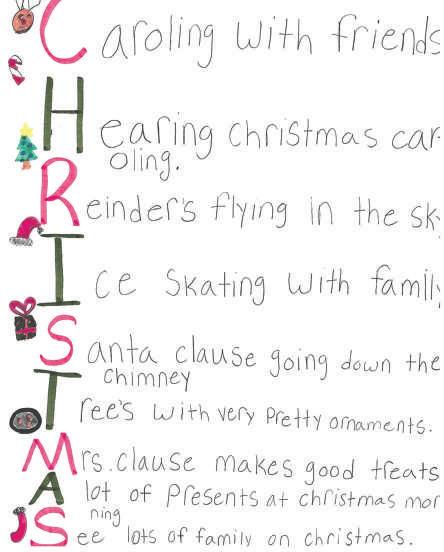 Caroling with friends
Hearing christmas car-
oling.
Reinder's flying in the sky
Ice skating with family
Santa clause going down the
chimney
Tree's with very pretty ornaments.
Mrs. clause makes good treats
A lot of presents at christmas mor
ning
See lots of family on christmas.